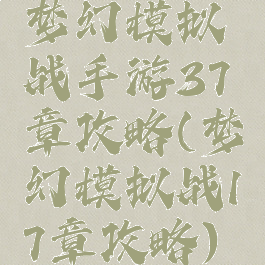 梦幻模拟
战手游37
章攻略(梦
幻模拟战1
7章攻略)